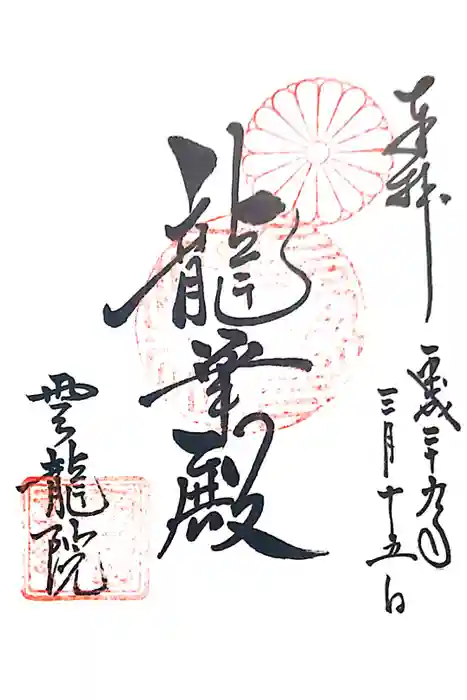 奉拝
平成二十九年
三月十五日
龍華殿
雲龍院